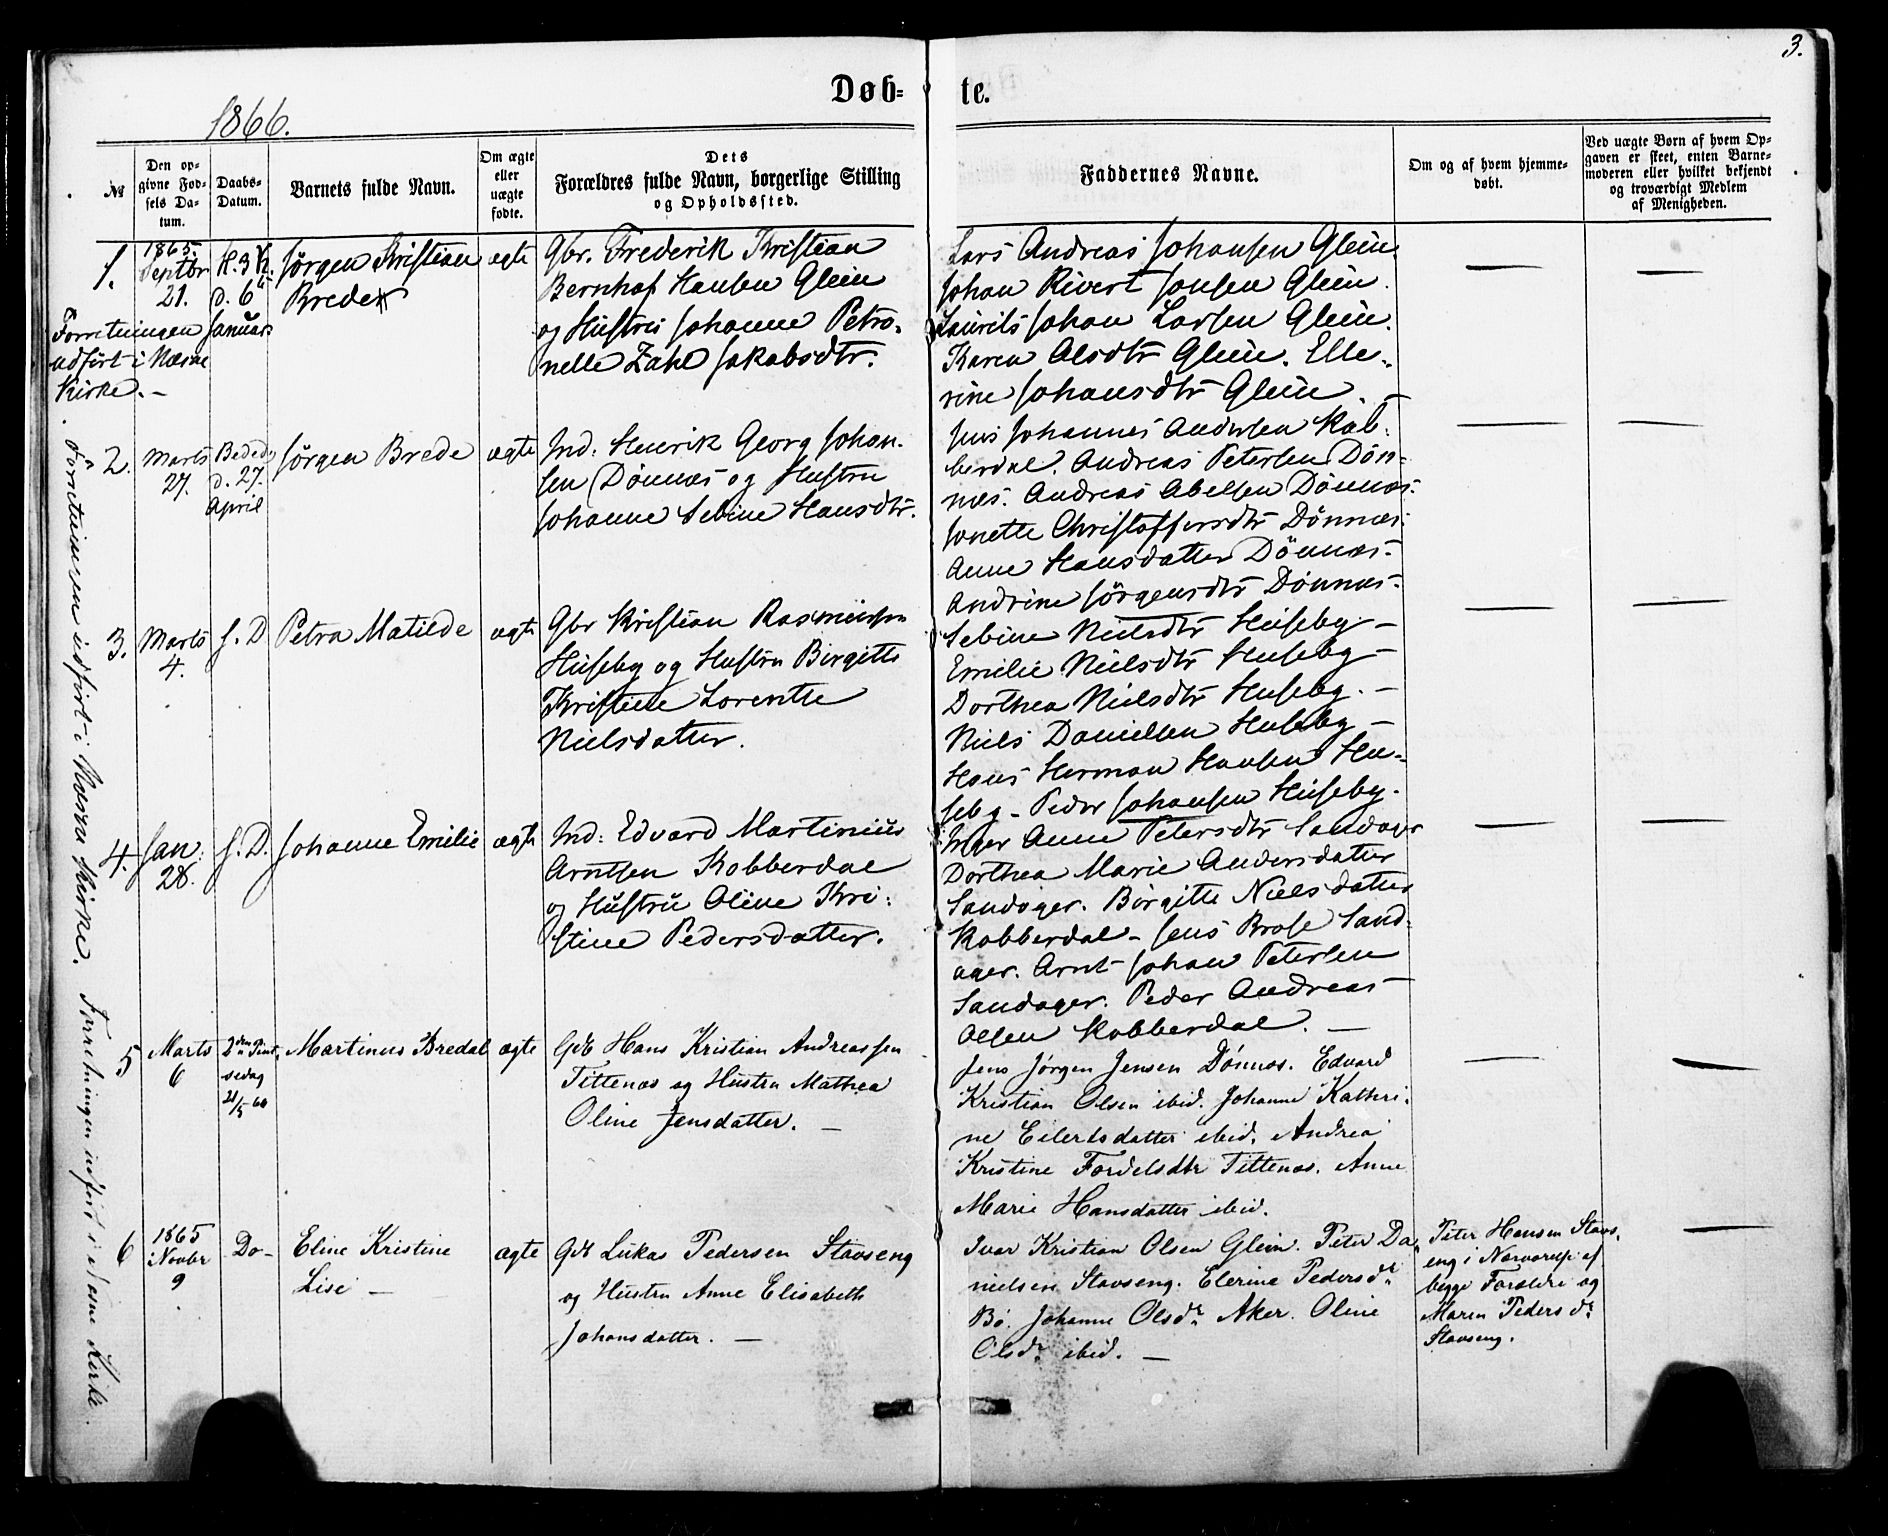 3.
Døb- te.
1866.
№
Den op-
givne Fød-
sels Da-
tum.
Daabs-
Datum.
Barnets fulde Navn.
Om ægte
eller
uægte
fødte.
Dets
Forældres fulde Navn, borgerlige Stilling
og Opholdssted.
Faddernes Navne.
Om og af hvem hjemme-
døbt.
Ved uægte Børn af hvem Op-
gaven er skeet, enten Barne-
moderen eller hvilket bekjendt
og troværdigt Medlem
af Menigheden.
1.
1865.
Septbr
21.
H. 3 K.
d. 6
Januar
Jørgen Kristian
Brede
ægte
Gbr. Frederik Kristian
Bernhof Hansen Glein
og Hustru Johanne Petro-
nelle Zahl Jakobsdtr.
Lars Andreas Johansen Glein.
Johan Rivert Jonsen Glein.
Laurits Johan Larsen Glein.
Karen Olsdtr Glein. Elle-
rine Johansdtr Glein. —
—
—
Forretningen
udført i Næsne
Kirke. —
2.
Marts
27.
Beded.
d. 27.
April
Jørgen Brede
ægte
Ind: Henrik Georg Johan-
sen Dønnæs og Hustru
Johanne Sebine Hansdtr.
Jens Johannes Andersen Kob-
berdal. Andreas Petersen Døn-
næs. Andreas Abelsen Dønnæs.
Jonette Christoffersdtr Dønnæs.
Anne Hansdatter Dönnæs.
Andrine Jörgensdtr Dönnæs.
—
—
3.
Marts
4.
s. D
Petra Matilde
ægte
Gbr Kristian Rasmussen
Huseby og Hustru Birgitte
Kristine Lorentse
Nielsdatter.
Sebine Nielsdtr Huseby —
Emilie Nielsdtr Huseby —
Dorthea Nielsdtr Huseby. —
Niels Danielsen Huseby —
Hans Herman Hansen Hu-
seby — Peder Johansen Huseby.
—
—
4.
Jan.
28.
s. D.
Johanne Emilie
ægte
Ind: Edvard Martinius
Arntsen Kobberdal
og Hustru Oline Kri-
stine Pedersdatter.
Inger Anne Petersdtr Sandager
Dorthea Marie Andersdatter
Sandager. Birgitte Nielsdatter
Kobberdal — Jens Brose Sand-
ager. Arnt Johan Petersen
Sandager. Peder Andreas
Olsen Kobberdal. —
—
—
Forretningen udført i Næsne Kirke.
5
Marts
6
2den Pint
sedag
21/5 66
Martinus Bredal
ægte
Gbr Hans Kristian Andreassen
Tittenæs og Hustru Mathea
Oline Jensdatter. —
Jens Jørgen Jensen Dønnæs. Edvard
Kristian Olsen ibid. Johanne Kathri-
ne Eilertsdatter ibid. Andrea
Kristine Fordelsdtr Tittenæs. Anne
Marie Hansdatter ibid.
—
—
6
1865
Novbr
9
Do —
Eline Kristine
Lise —
ægte
Gbr Lukas Pedersen Stavseng
og Hustru Anne Elisabeth
Johansdatter. —
Ivar Kristian Olsen Glein. Peter Da-
nielsen Stavseng. Elerine Pedersdr
Bø. Johanne Olsdr Aker. Oline
Olsdr ibid. —
Peter Hansen Stavs-
eng i Nærværelse af
begge Forældre og
Maren Pedersdr
Stavseng.
—
Forretningen udført i Næsne Kirke.